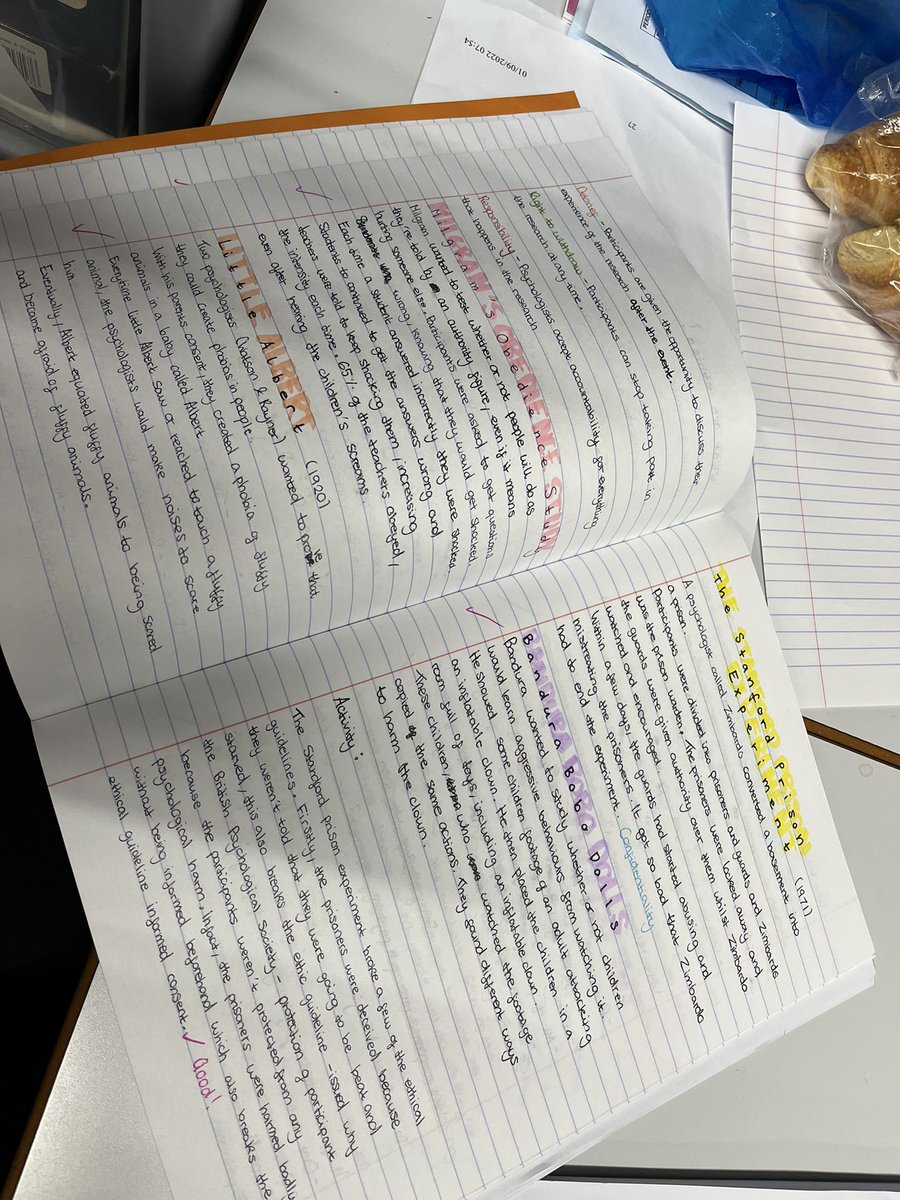 01/09/2022 07:54
27
Debrief - Participants are given the opportunity to discuss their
experience of the research after the event.
Right to withdraw - Participants can stop taking part in
the research at any time.
Responsibility - Psychologists accept accountability for everything
that happens in the research
Milgram's Obedience Study
Milgram wanted to test whether or not people will do as
they're told by an authority figure, even if it means
hurting someone else. Participants were asked to get questions
wrong, knowing that they would get shocked.
Each time a student answered incorrectly they were shocked
Students to continued to get the answers wrong and
teachers were told to keep shocking them, increasing
the intensity each time. 65% of the teachers obeyed,
even after hearing the children's screams
LITTLE ALBERT
Little Albert (1920)
Two psychologists (Watson & Rayner) wanted to prove that
they could create phobias in people.
With his parents consent, they created a phobia of fluffy
animals in a baby called Albert
Everytime little Albert saw or reached to touch a fluffy
animal, the psychologists would make noises to scare
him.
Eventually, Albert equated fluffy animals to being scared
and became afraid of fluffy animals.
The Stanford Prison (1971)
Experiment
A psychologist called Zimbardo converted a basement into
a prison. Participants were divided into prisoners and guards and Zimbardo
was the prison warden. The prisoners were locked away and
the guards were given authority over them whilst Zimbardo
watched and encouraged.
Within a few days, the guards had started abusing and
mistreating the prisoners. It got so bad that Zimbardo
had to end the experiment
Confidentiality
BANDURA BOBO DOLLS
Bandura Bobo Dolls
Bandura wanted to study whether or not children
would learn aggressive behaviours from watching it.
He showed some children footage of an adult attacking
an inflatable clown. He then placed the children in a
room full of toys, including an inflatable clown.
These children, who watched the footage
copied the same actions. They found different ways
to harm the clown.
Activity:
The Standford prison experiment broke a few of the ethical
guidelines. Firstly, the prisoners were deceived because
they weren't told that they were going to be beat and
starved, this also breaks the ethic guideline - issued by
the British Psychological Society - protection of participant
because the participants weren't protected from any
psychological harm. Infact, the prisoners were harmed badly
without being informed beforehand which also breaks the
ethical guideline informed consent. ✓ Good!